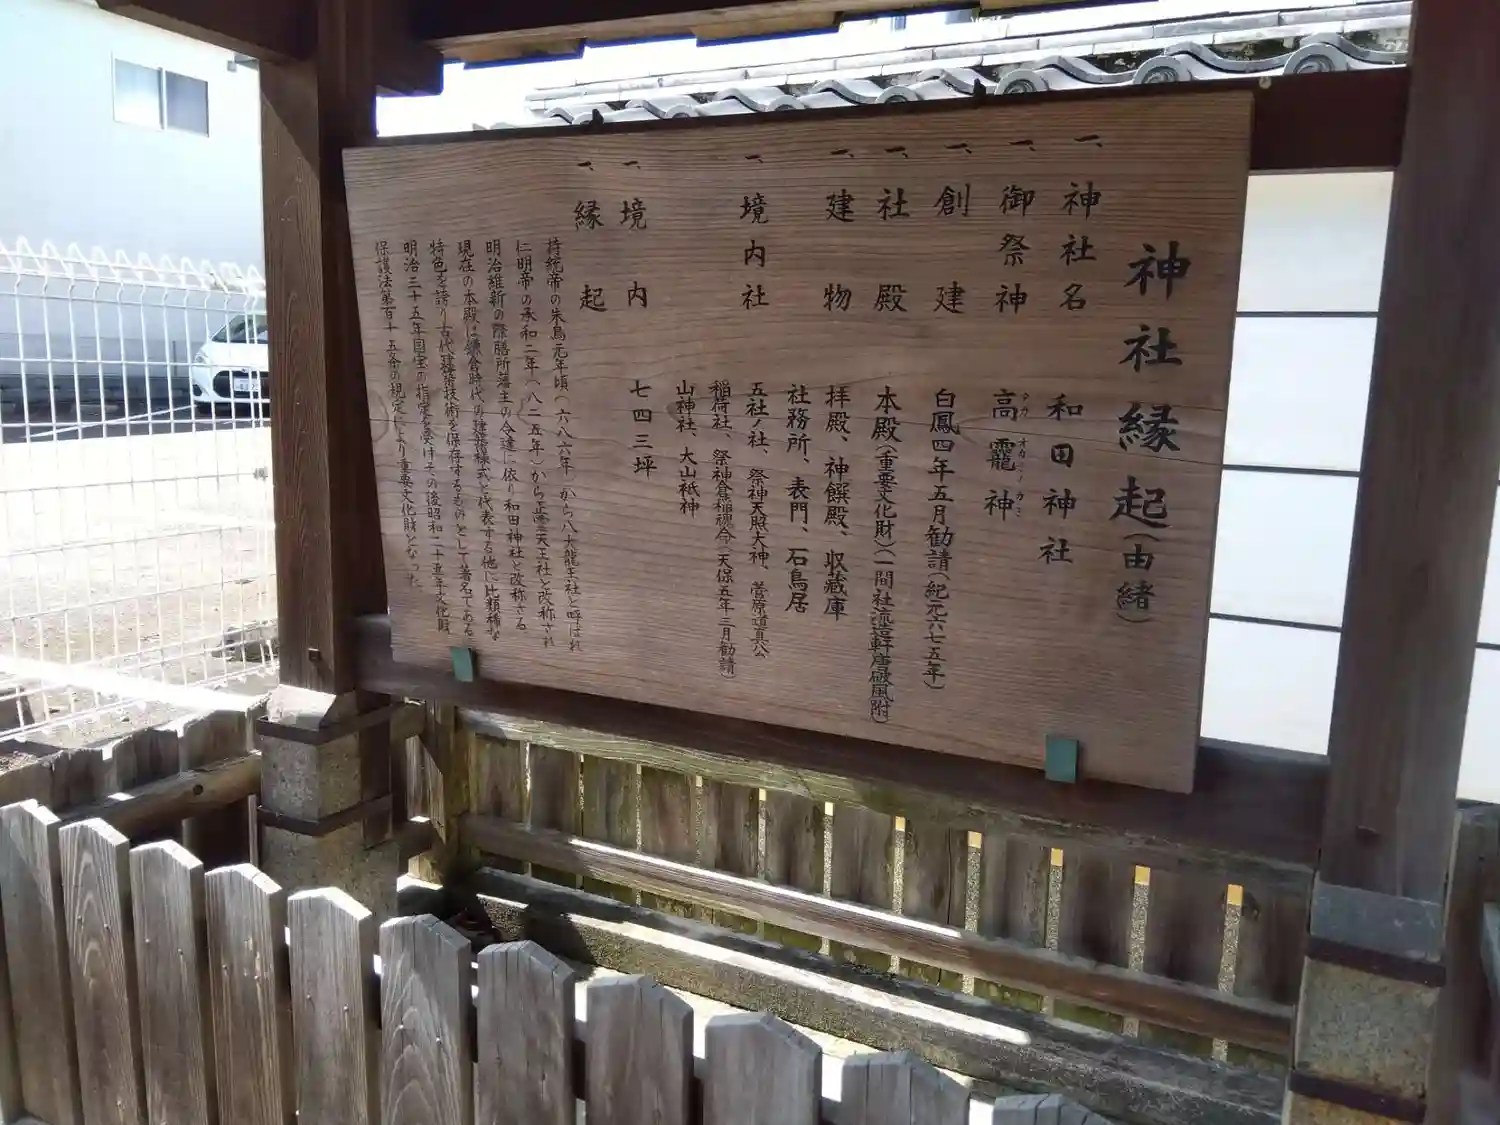 神社縁起(由緒)
一、神社名 和田神社
一、御祭神 高龗神
タカ オカミノ カミ
一、創建 白鳳四年五月勧請(紀元六七五年)
一、社殿 本殿(重要文化財)(一間社流造軒唐破風附)
一、建物 拝殿、神饌殿、収蔵庫
社務所、表門、石鳥居
一、境内社 五社ノ社、祭神天照大神、菅原道真公
稲荷社、祭神倉稲魂命(天保五年三月勧請)
山神社、大山祇神
一、境内 七四三坪
一、縁起 持統帝の朱鳥元年頃(六八六年)から八大龍王社と呼ばれ
仁明帝の承和二年(八二五年)から正霊天王社と改称され
明治維新の際膳所藩主の令達に依り和田神社と改称さる
現在の本殿は鎌倉時代の建築様式を代表する他に比類稀な
特色を誇り古代建築技術を保存するものとして著名である
明治三十五年国宝の指定を受けその後昭和二十五年文化財
保護法第百十五条の規定により重要文化財となった